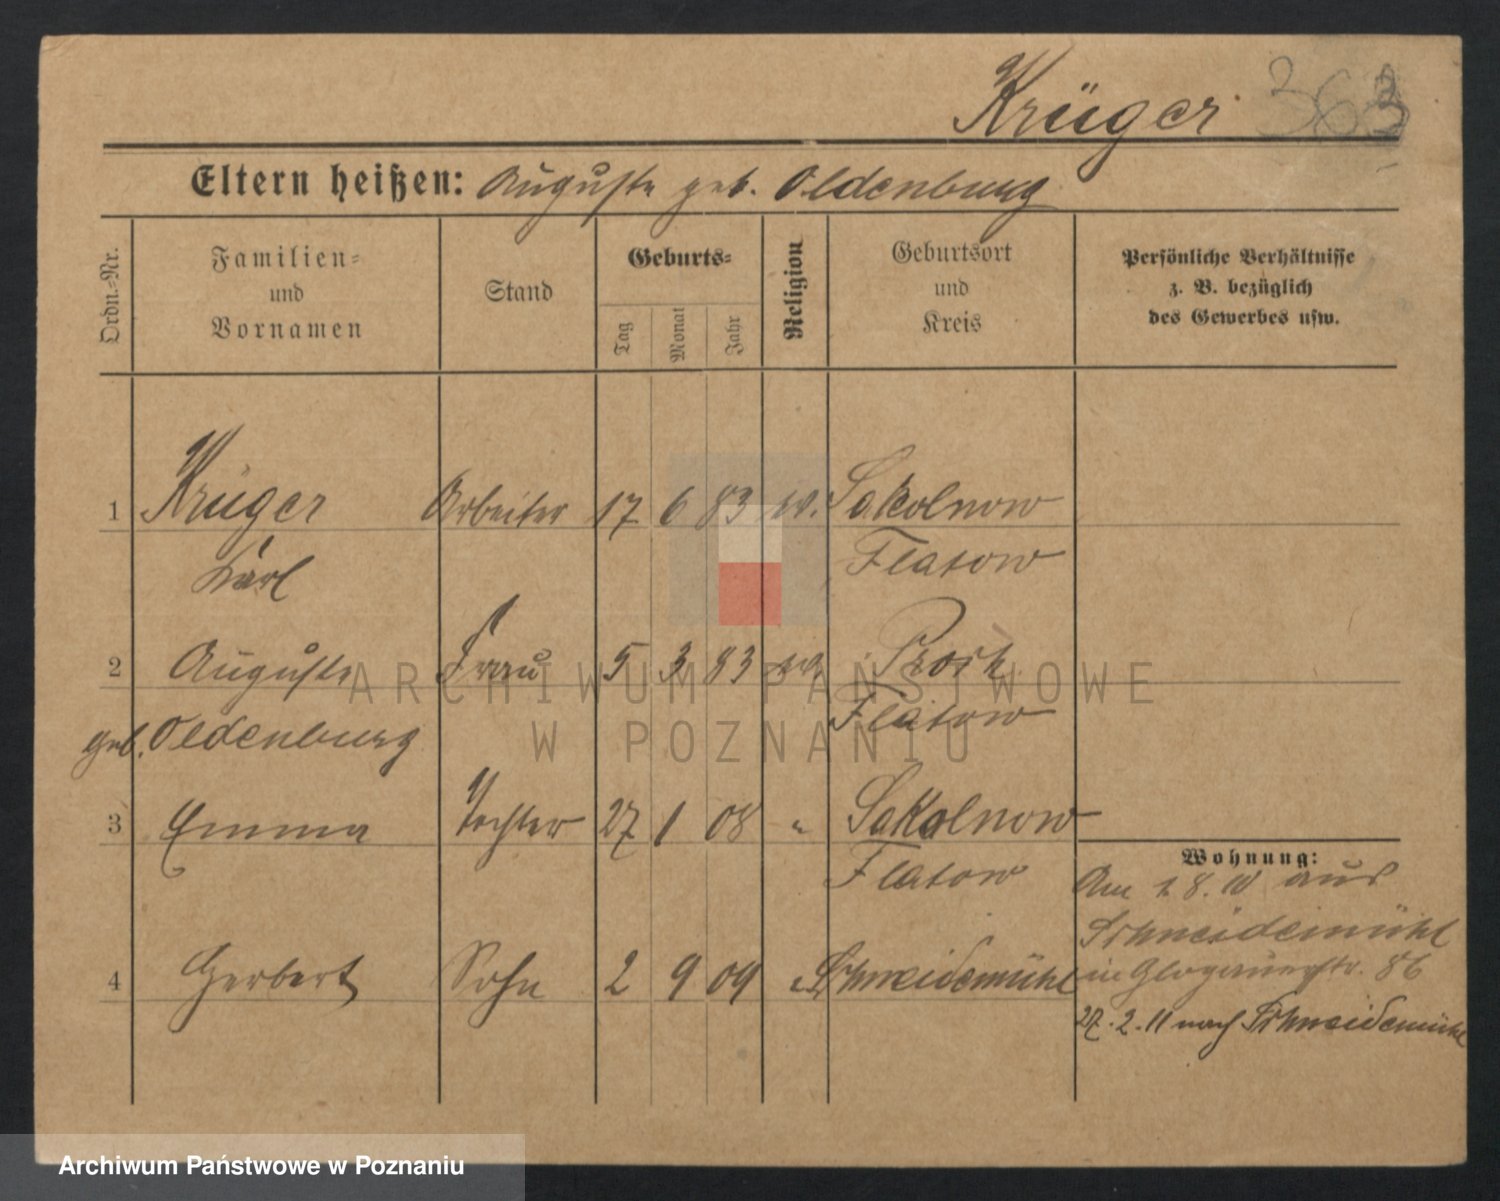 Krüger 363
Eltern heißen: Auguste geb. Oldenburg
Ordn.-Nr.
Familien-
und
Vornamen
Stand
Geburts-
Tag
Monat
Jahr
Religion
Geburtsort
und
Kreis
Persönliche Verhältnisse
z. B. bezüglich
des Gewerbes usw.
1 Krüger Arbeiter 17 6 83 ev. Sakolnow
Karl Flatow
2 Auguste Frau 5 3 83 ev.
geb. Oldenburg Flatow
3 Emma Tochter 27 1 08 " Sakolnow
Flatow
4 Gerbert Sohn 2 9 09 " Schneidemühl
Wohnung:
Am 1. 8. 10 aus
Schneidemühl
in Glogauerstr. 86
27. 2. 11 nach Schneidemühl
ARCHIWUM PAŃSTWOWE
W POZNANIU
Archiwum Państwowe w Poznaniu